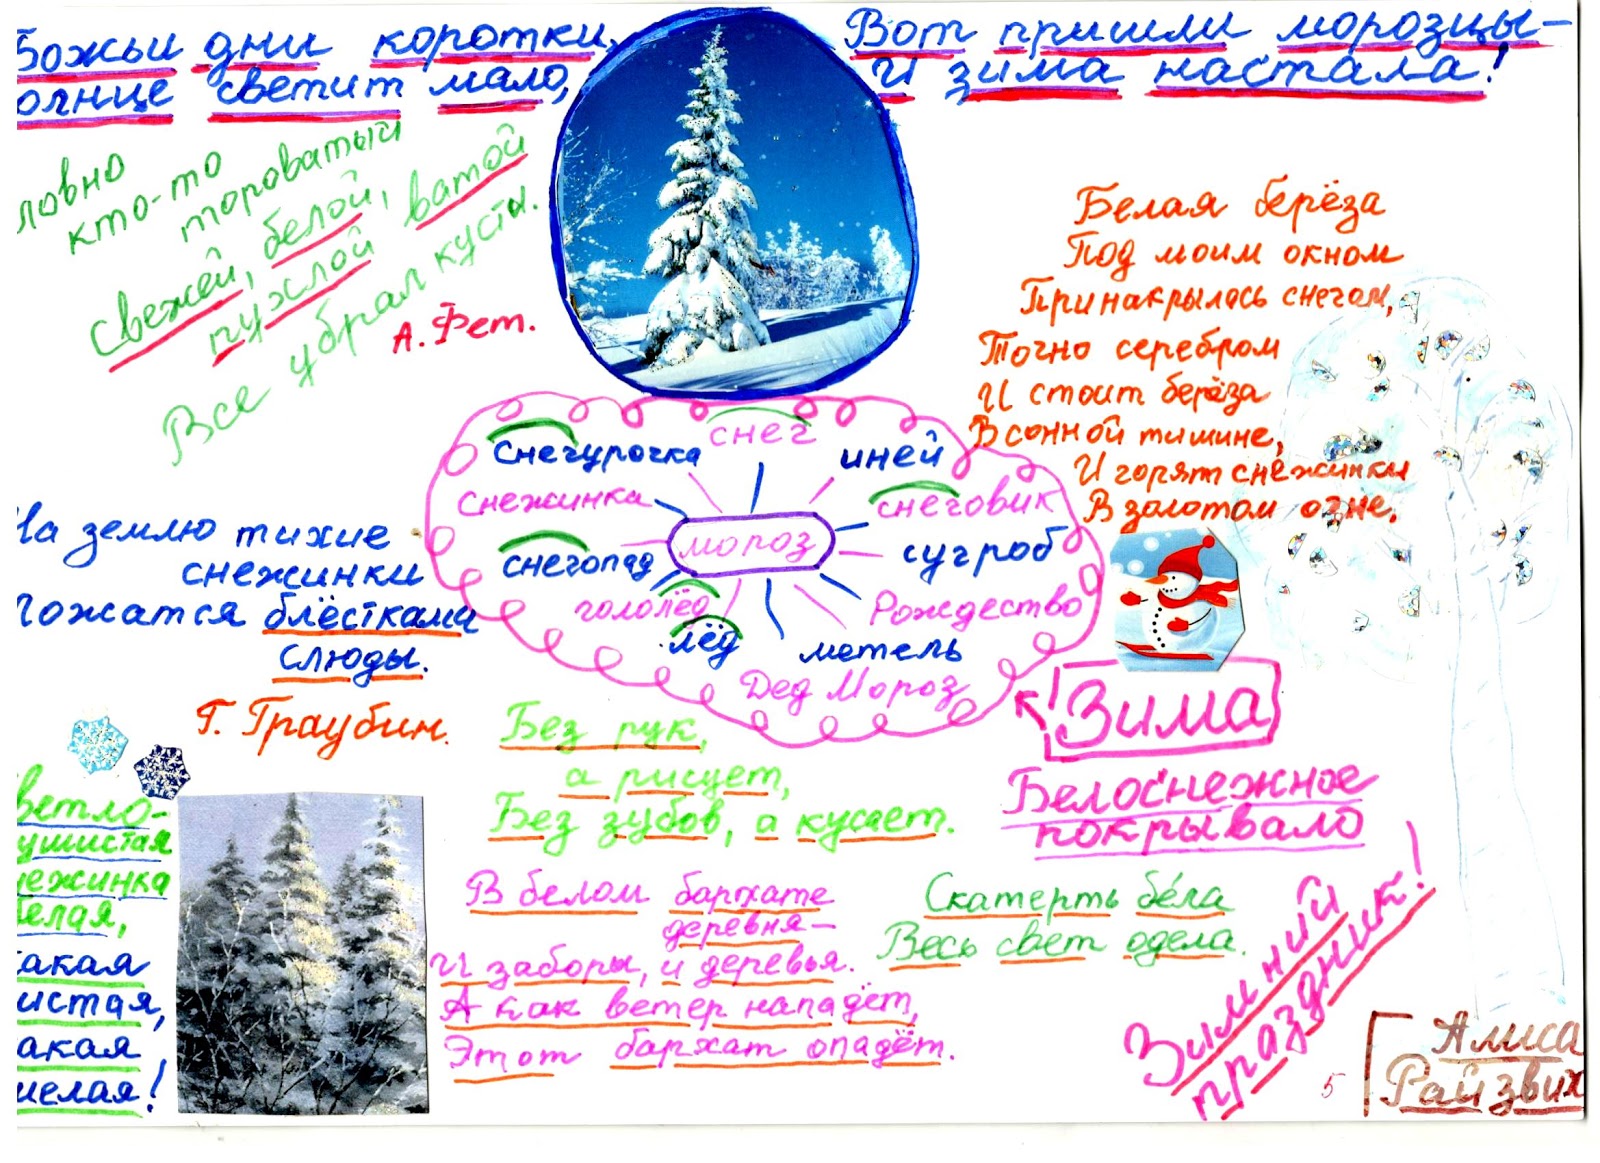 Божьи дни коротки,
олнце светит мало,
Вот пришли морозцы-
И зима настала!
ловно
кто-то
тороватый
Свежей, белой,
пухлой ватой
Все убрал кусты.
А. Фет.
Белая берёза
Под моим окном
Принакрылась снегом,
Точно серебром
И стоит берёза
В сонной тишине,
И горят снежинки
В золотом огне.
снег
снегурочка
иней
снежинка
снеговик
мороз
снегопад
сугроб
гололёд
Рождество
лёд
метель
Дед Мороз
На землю тихие
снежинки
ложатся блёстками
слюды.
Г. Граубин.
Зима
Без рук,
а рисует,
Без зубов, а кусает.
Белоснежное
покрывало
ветло-
ушистая
нежинка
белая,
акая
истая,
акая
мелая!
В белом бархате
деревня—
И заборы, и деревья.
А как ветер нападёт,
Этот бархат опадёт.
Скатерть бела
Весь свет одела.
Зимний
праздник!
5
Алиса
Райзвих